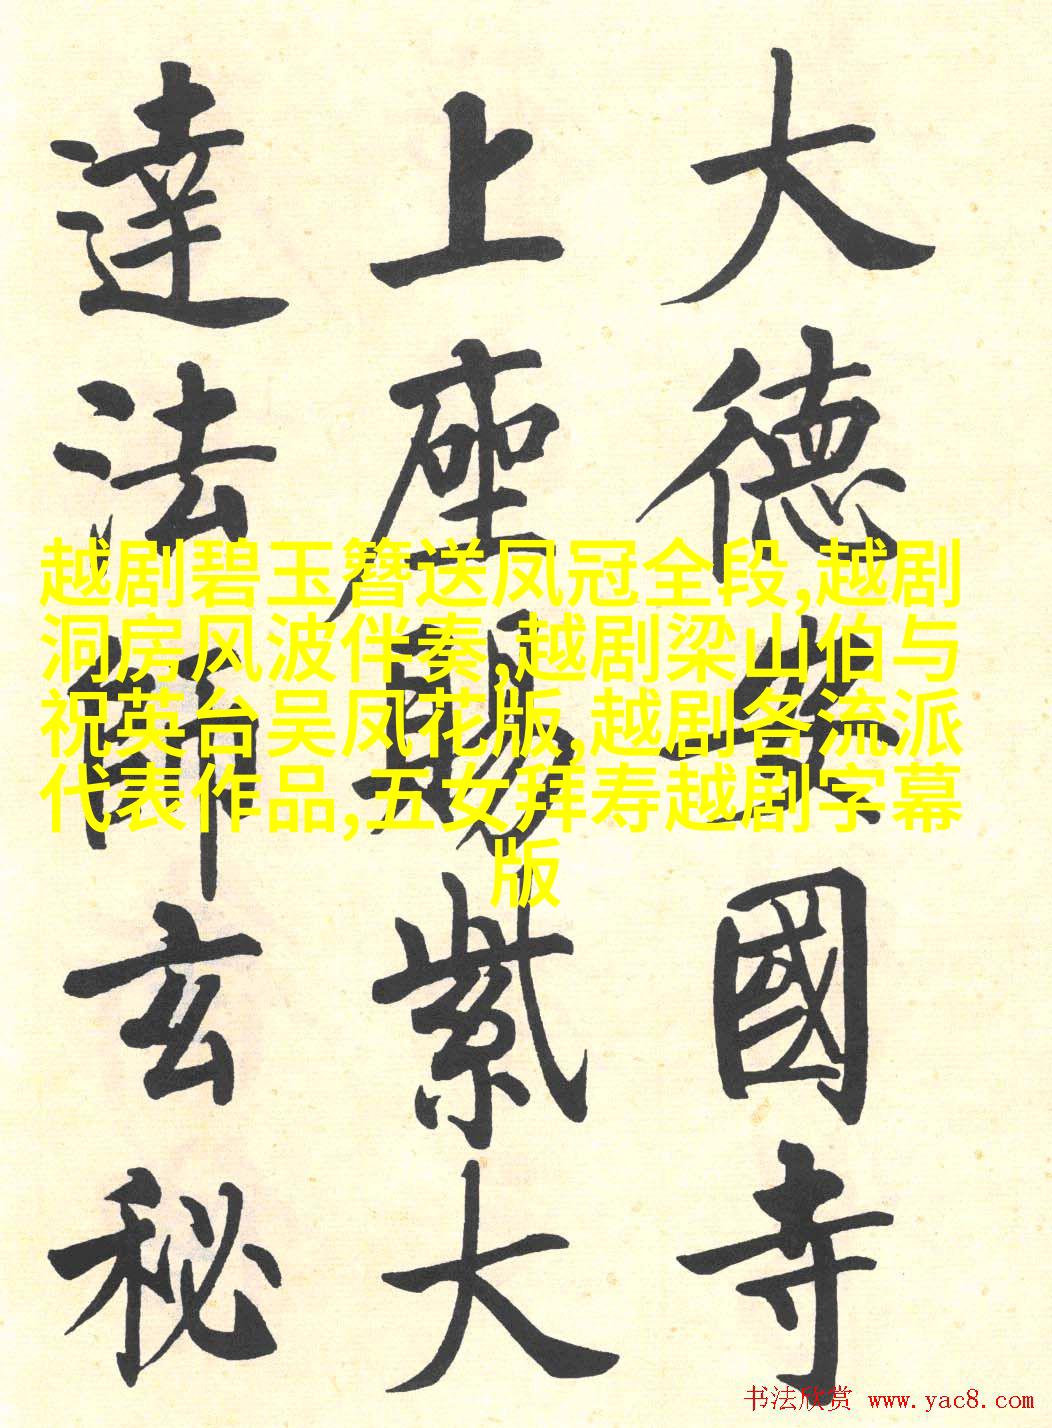 大德安國寺
上座賜紫大
達法師玄秘
越剧碧玉簪送凤冠全段,越剧
洞房风波伴奏,越剧梁山伯与
祝英台吴凤花版,越剧各流派
代表作品,五女拜寿越剧字幕
版
书法欣赏 www.yac8.com